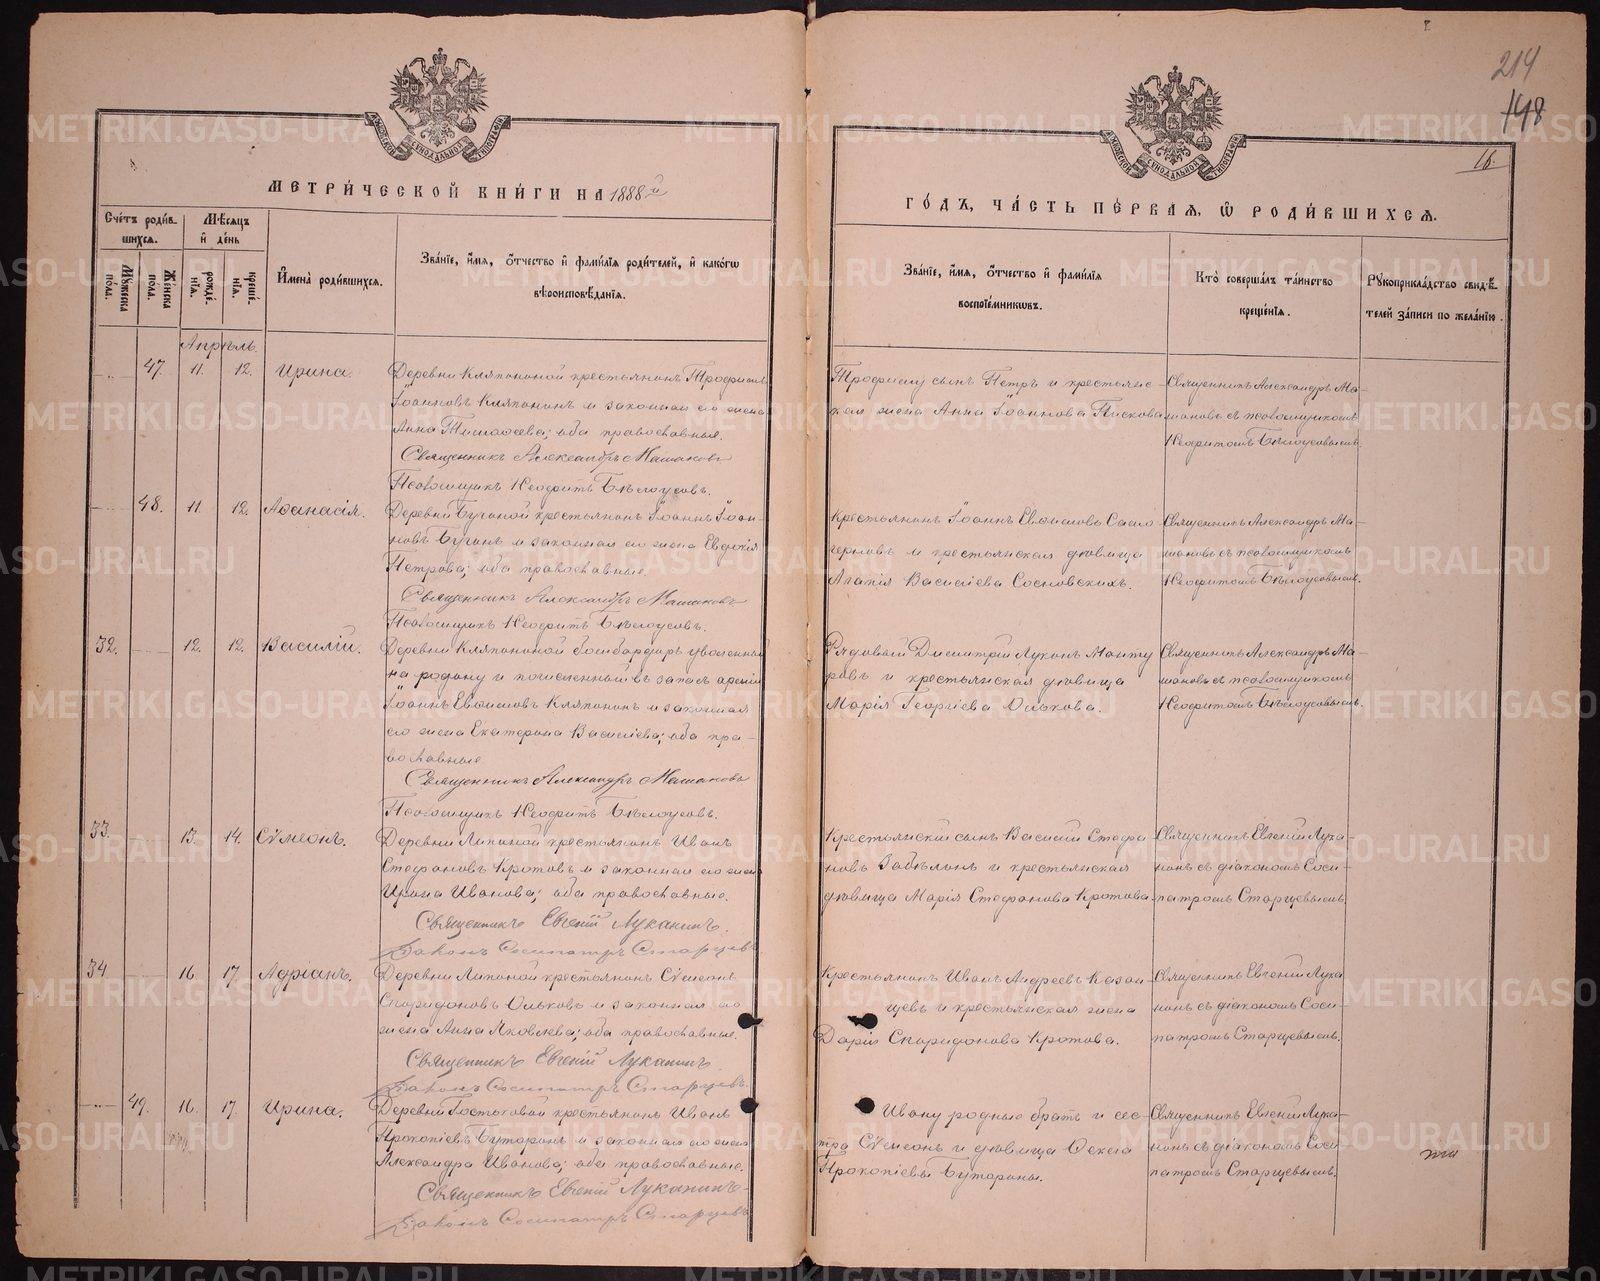 214
148
16.
МЕТРИЧЕСКОЙ КНИГИ НА 1888й
Счетъ родив-
шихся.
Мѣсяцъ
и день
Мужеска
пола.
Женска
пола.
рожде-
нія.
креще-
нія.
Имена родившихся.
Званіе, имя, отчество и фамилія родителей, и какогѡ
вѣроисповѣданія.
ГОДЪ, ЧАСТЬ ПЕРВАЯ, Ѡ РОДИВШИХСЯ.
Званіе, имя, отчество и фамилія
воспріемниковъ.
Кто совершалъ таинство
крещенія.
Рукоприкладство свидѣ-
телей записи по желанію.
Апрѣль.
47. 11. 12. Ирина.
Деревни Кляпониной крестьянинъ Трофимъ
Іоанновъ Кляпонинъ и законная его жена
Анна Тимофеева; оба православные.
Священникъ Александръ Машановъ
Псаломщикъ Неофитъ Бѣлоусовъ.
Трофиму сынъ Петръ и крестьянс-
кая жена Анна Іоаннова Пискова
Священникъ Александръ Ма-
шановъ съ псаломщикомъ
Неофитомъ Бѣлоусовымъ.
48. 11. 12. Аѳанасія.
Деревни Бугиной крестьянинъ Іоаннъ Іоан-
новъ Бугинъ и законная его жена Евдокія
Петрова; оба православные.
Священникъ Александръ Машановъ
Псаломщикъ Неофитъ Бѣлоусовъ.
Крестьянинъ Іоаннъ Евѳимовъ
и крестьянская дѣвица
Агапія Василіева Сосновскихъ.
Священникъ Александръ Ма-
шановъ съ псаломщикомъ
Неофитомъ Бѣлоусовымъ.
32. 12. 12. Василій.
Деревни Кляпониной бомбардиръ уволенный
на родину и численный въ запасъ арміи
Іоаннъ Евѳимовъ Кляпонинъ и законная
его жена Екатерина Василіева; оба пра-
вославные
Священникъ Александръ Машановъ
Псаломщикъ Неофитъ Бѣлоусовъ.
Рядовой Димитрій Лукинъ Манту
ровъ и крестьянская дѣвица
Марія Георгіева Олькова.
Священникъ Александръ Ма-
шановъ съ псаломщикомъ
Неофитомъ Бѣлоусовымъ.
33. 13. 14. Сѵмеонъ.
Деревни Липиной крестьянинъ Иванъ
Стефановъ Кротовъ и законная его жена
Ирина Иванова; оба православные.
Священникъ Евгеній Луканинъ.
Діаконъ Сосипатръ Старцевъ
Крестьянскій сынъ Василій Стефа
новъ Забѣлинъ и крестьянская
дѣвица Марія Стефанова Кротова
Священникъ Евгеній Лука-
нинъ съ діакономъ Соси-
патромъ Старцевымъ.
34 16 17. Адріанъ.
Деревни Липиной крестьянинъ Сѵмеонъ
Спиридоновъ Ольковъ и законная его
жена Анна Яковлева; оба православные.
Священникъ Евгеній Луканинъ.
Діаконъ Сосипатръ Старцевъ.
Крестьянинъ Иванъ Андреевъ Казан-
цевъ и крестьянская жена
Дарія Спиридонова Кротова.
Священникъ Евгеній Лука
нинъ съ діакономъ Соси-
патромъ Старцевымъ.
49. 16. 17. Ирина.
Деревни Гостьковой крестьянинъ Иванъ
Прокопіевъ Бутаринъ и законная его жена
Александра Иванова; оба православные.
Священникъ Евгеній Луканинъ
Діаконъ Сосипатръ Старцевъ
Ивану родные братъ и сес-
тра Сѵмеонъ и дѣвица Фекла
Прокопіевы Бутарины.
Священникъ Евгеній Лука-
нинъ съ діакономъ Соси-
патромъ Старцевымъ.